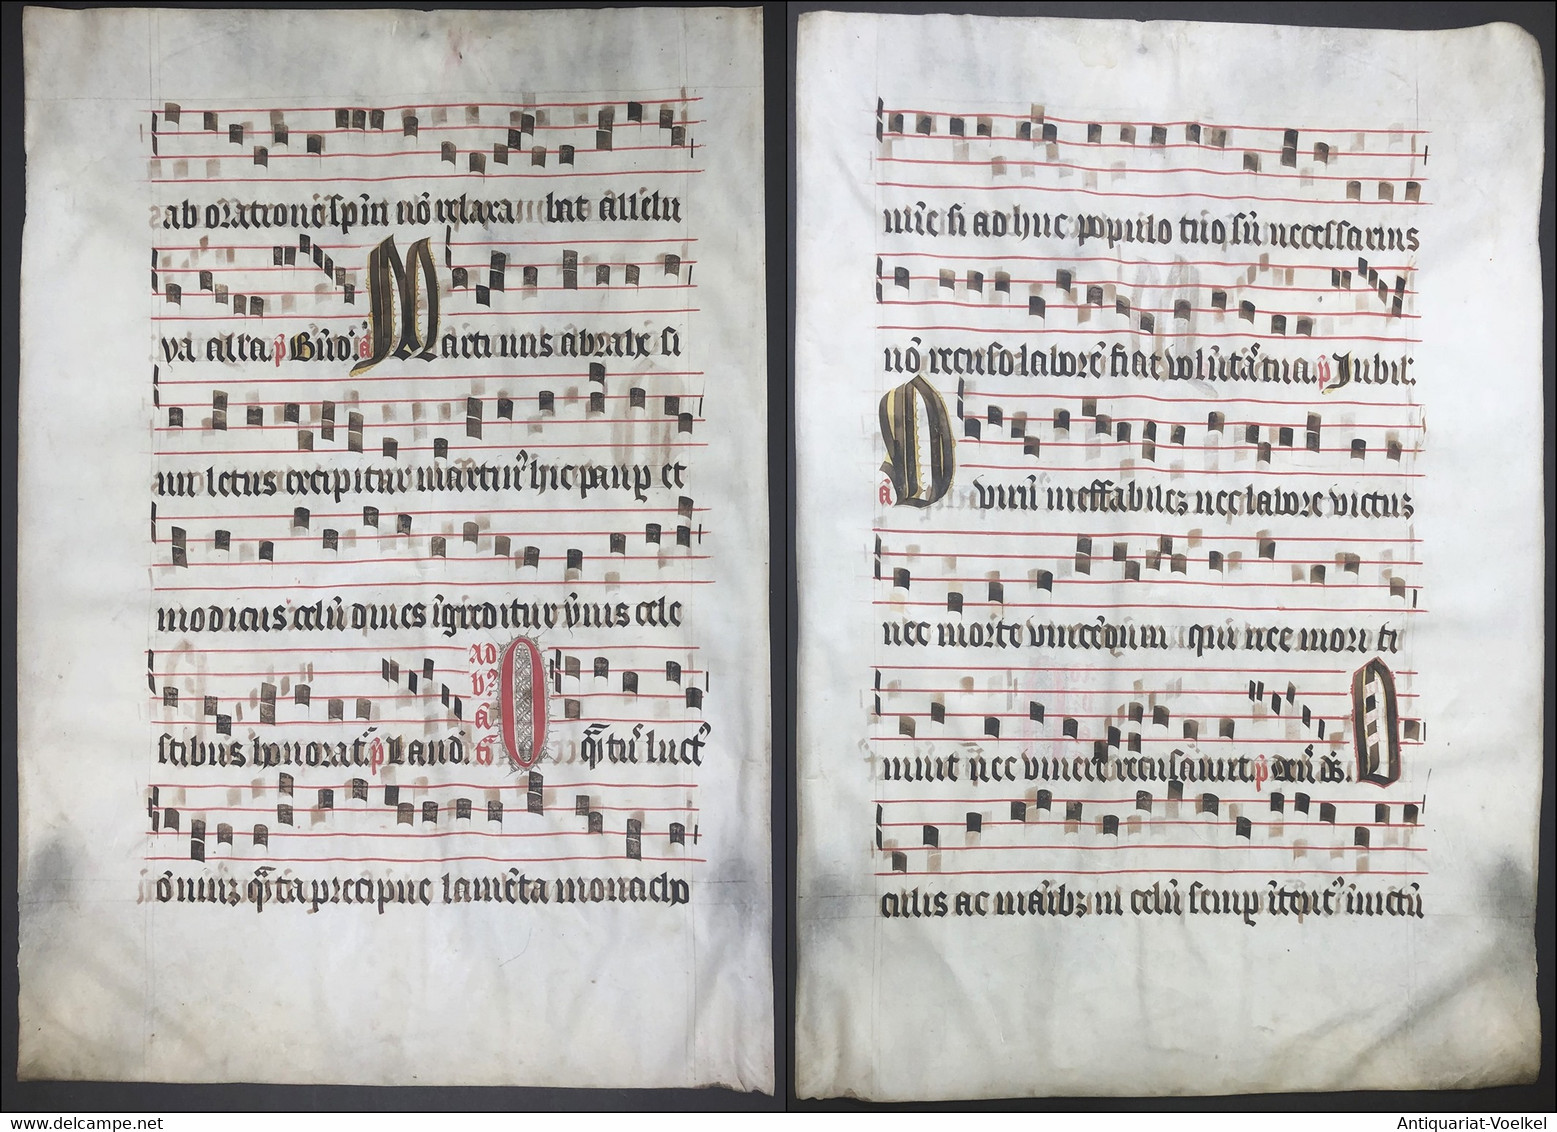 ab oratione spm nō relaxa bat allelu
ya alla. p̄ Bn̄d. a Martinus abrahe si
nu letus excipitur martin' hic paup et
modicus celū diues īgreditur ymnis cele
stibus honorat'. p̄ Laud. Ad b' a t̄a O q̄ntus luct'
omniū q̄nta precipue lamēta monacho
mīe si adhuc populo tuo sū necessarius
nō recuso laborē fiat volūtas tua. p̄ Jubil'.
a O virū ineffabilē nec labore victus
nec morte vincēdum qui nec mori ti
muit nec vivere recusavit. p̄ deus ds. O
culis ac manibz in celū semp ītentus īvictū
Antiquariat-Voelkel